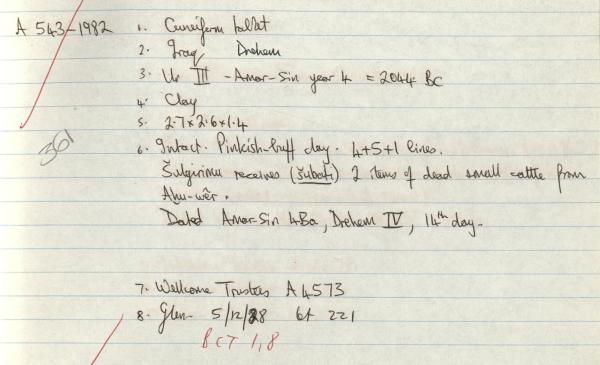 A 543-1982
1. Cuneiform tablet
2. Iraq Drehem
3. Ur III - Amar-Sin year 4 = 2044 BC
4. Clay
5. 2.7 x 2.6 x 1.4
361
6. Intact. Pinkish-buff clay. 4+5+1 lines.
Šulgirimu receives (šubati) 2 items of dead small cattle from
Ahu-wêr.
Dated Amar-Sin 4Ba, Drehem IV, 14th day.
7. Wellcome Trustees A4573
8. Glen. 5/12/28 lot 221
BCT 1,8